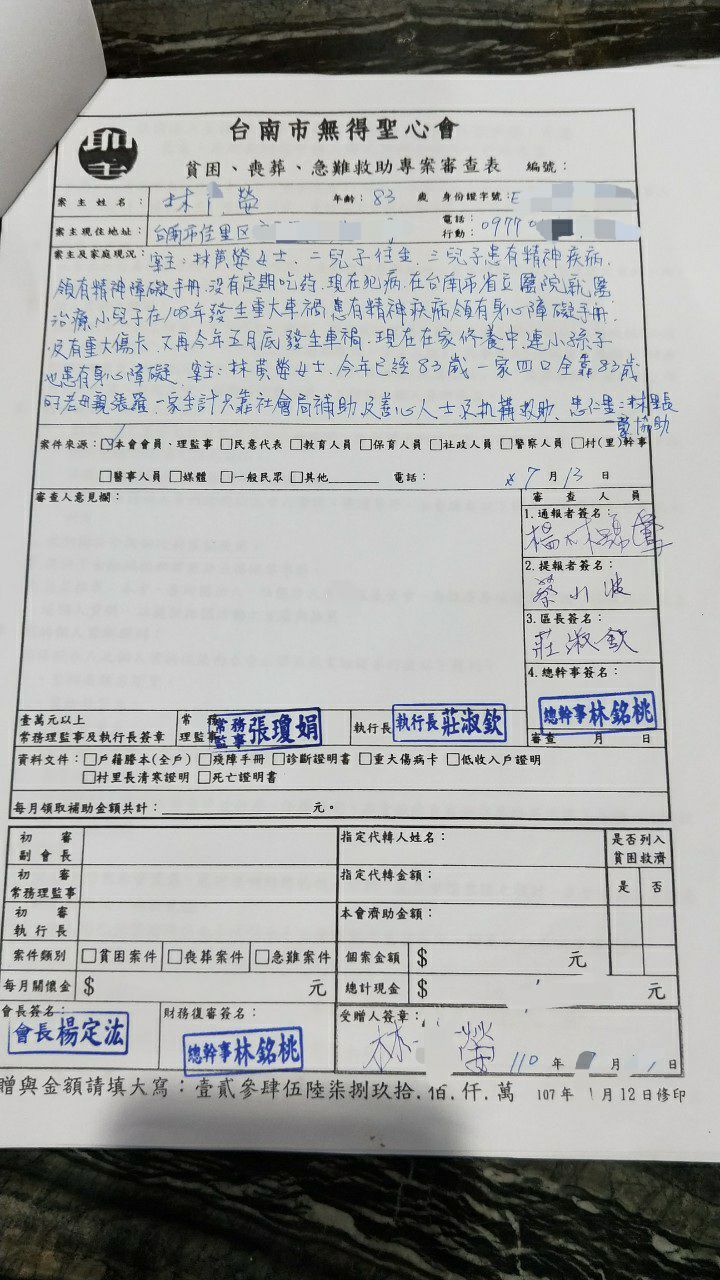 聖
台南市無得聖心會
貧困、喪葬、急難救助專案審查表 編號：
案主姓名： 林 年齡：83 歲 身份證字號：E
案主現住地址： 台南市佳里區 電話： 行動：0977
案主及家庭現況： 案主：林黃螢女士．二兒子往生．三兒子患有精神疾病．
領有精神障礙手冊．沒有定期吃药．現在犯病．在台南市省立醫院就醫
治療．小兒子在108年發生重大車禍．患有精神疾病．領有身心障礙手冊．
及有重大傷卡．不再今年五月底發生車禍．現在在家修養中．連小孫子
也患有身心障礙．案主：林黃螢女士．今年已經83歲一家四口全靠83歲
的老母親張羅．一家生計只靠社會局補助及善心人士及机構救助．忠仁里：林里長
協助
案件來源：☑本會會員、理監事 □民意代表 □教育人員 □保育人員 □社政人員 □警察人員 □村(里)幹事
□醫事人員 □媒體 □一般民眾 □其他 電話： 7月13日
審查人意見欄： 審查人員
1.通報者簽名：
楊林
2.提報者簽名：
蔡小波
3.區長簽名：
莊淑欽
4.總幹事簽名：
總幹事林銘桃
審查 月 日
壹萬元以上
常務理監事及執行長簽章 常務理監事 常務監事張瓊娟 執行長 執行長莊淑欽
資料文件：□戶籍謄本(全戶) □殘障手冊 □診斷證明書 □重大傷病卡 □低收入戶證明
□村里長清寒證明 □死亡證明書
每月領取補助金額共計： 元。
初審副會長 指定代轉人姓名： 是否列入貧困救濟
初審常務理監事 指定代轉金額： 是 否
初審執行長 本會濟助金額：
案件類別 □貧困案件 □喪葬案件 □急難案件 個案金額 $ 元
每月關懷金 $ 元 總計現金 元
會長簽名： 會長楊定汯 財務復審簽名： 總幹事林銘桃 受贈人簽章： 林
110年 月 日
贈與金額請填大寫：壹貳參肆伍陸柒捌玖拾.佰.仟.萬 107年 月12日修印